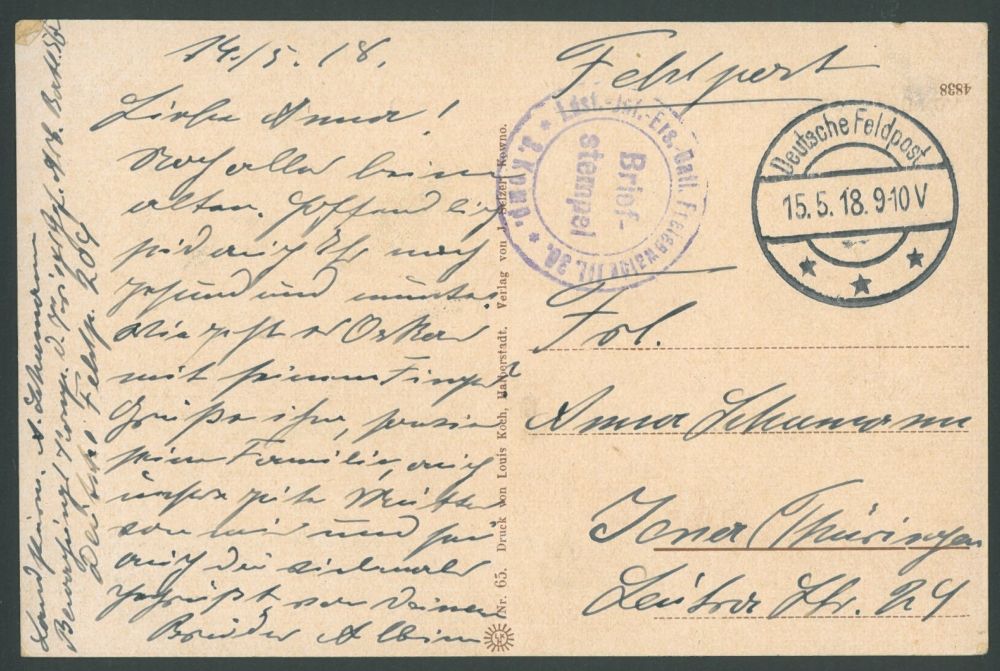 14./5.18.
Liebe Anna!
Noch alles beim
alten. Hoffendlich
seid auch Ihr noch
gesund und munter.
Wie geht es Oskar
mit seinem Finger?
Grüße ihn, sowie
seine Familie, auch
unsere gute Mutter
von mir und sei
auch du vielmals
gegrüßt von deinem
Bruder Albin
A. Schumann
Deutsche Feldp. 204
Nr. 65. Druck von Louis Koch, Halberstadt. Verlag von J. Selzer, Kowno.
Feldpost
4838
Ldst.-Inf.-Ers.-Batl. Freienwalde III. 36.
3. Kpng.
Brief-
stempel
Deutsche Feldpost
15.5.18.9-10V
Frl.
Anna Schumann
Jena (Thüringen
Leutra Str. 24